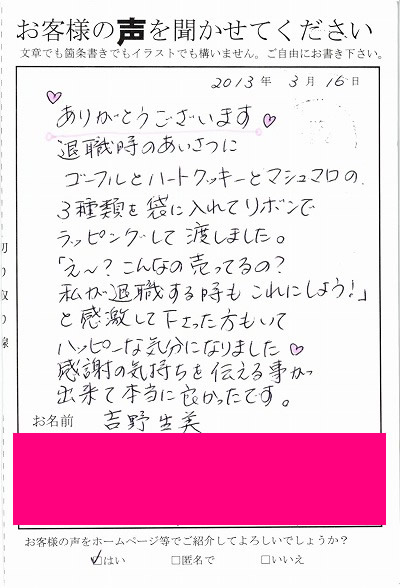 お客様の声を聞かせてください
文章でも箇条書きでもイラストでも構いません。ご自由にお書き下さい。
2013年 3月 16日
ありがとうございます
退職時のあいさつに
ゴーフルとハートクッキーとマシュマロの
3種類を袋に入れてリボンで
ラッピングして渡しました。
「え～?こんなの売ってるの?
私が退職する時もこれにしよう!」
と感激して下さった方もいて
ハッピーな気分になりました
感謝の気持ちを伝える事が
出来て本当に良かったです。
お名前 吉野生美
お客様の声をホームページ等でご紹介してよろしいでしょうか?
☑はい □匿名で □いいえ
切り取り線